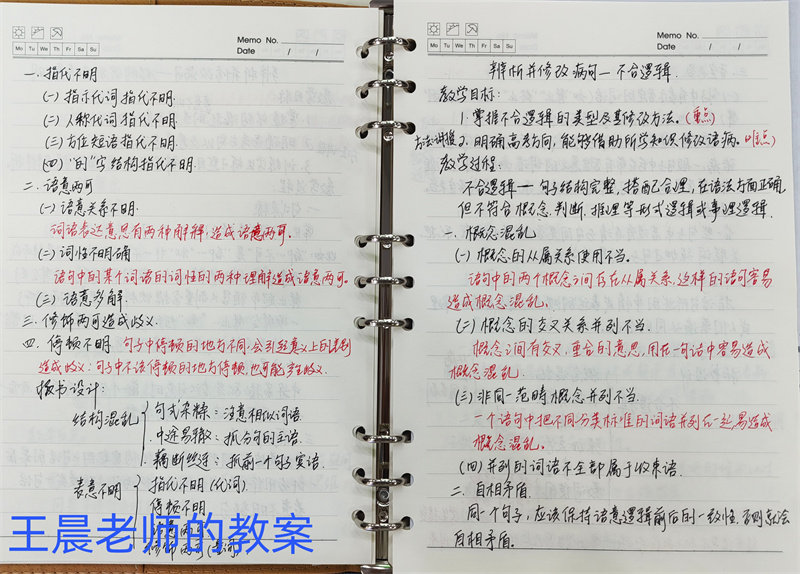 Memo No.
Mo Tu We Th Fr Sa Su
Date / /
一.指代不明
(一)指示代词指代不明.
(二)人称代词指代不明.
(三)方位短语指代不明.
(四)"的"字结构指代不明.
二.语意两可
(一)语意关系不明.
词语表达意思有两种解释,造成语意两可.
(二)词性不明确
语句中的某个词语的词性的两种理解造成语意两可。
(三)语意多解.
三.修饰两可造成歧义.
四.停顿不明.句子中停顿的地方不同,会引起意义上的差别
造成歧义:句子中不该停顿的地方停顿,也可能产生歧义.
板书设计:
结构混乱
句式杂糅:注意相似词语.
中途易辙:抓分句的主语.
藕断丝连:抓前一个句子宾语.
表意不明
指代不明(代词).
停顿不明
王晨老师的教案
Memo No.
Mo Tu We Th Fr Sa Su
Date / /
辨析并修改病句—不合逻辑.
教学目标:
1.掌握不合逻辑的类型及其修改方法。(重点)
2.明确高考方向,能够借助所学知识修改语病。(难点)
教学过程:
不合逻辑——句子结构完整,搭配合理,在语法方面正确,
但不符合概念.判断.推理等形式逻辑或事理逻辑.
一.概念混乱
(一)概念的从属关系使用不当.
语句中的两个概念之间存在从属关系,这样的语句容易
造成概念混乱.
(二)概念的交叉关系并列不当.
概念之间有交叉,重合的意思,用在一句话中容易造成
概念混乱.
(三)非同一范畴概念并列不当.
一个语句中把不同分类标准的词语并列在一起易造成
概念混乱。
(四)并列的词语不全部属于收束语.
二.自相矛盾.
同一个句子,应该保持语意逻辑前后的一致性.否则就会
自相矛盾。